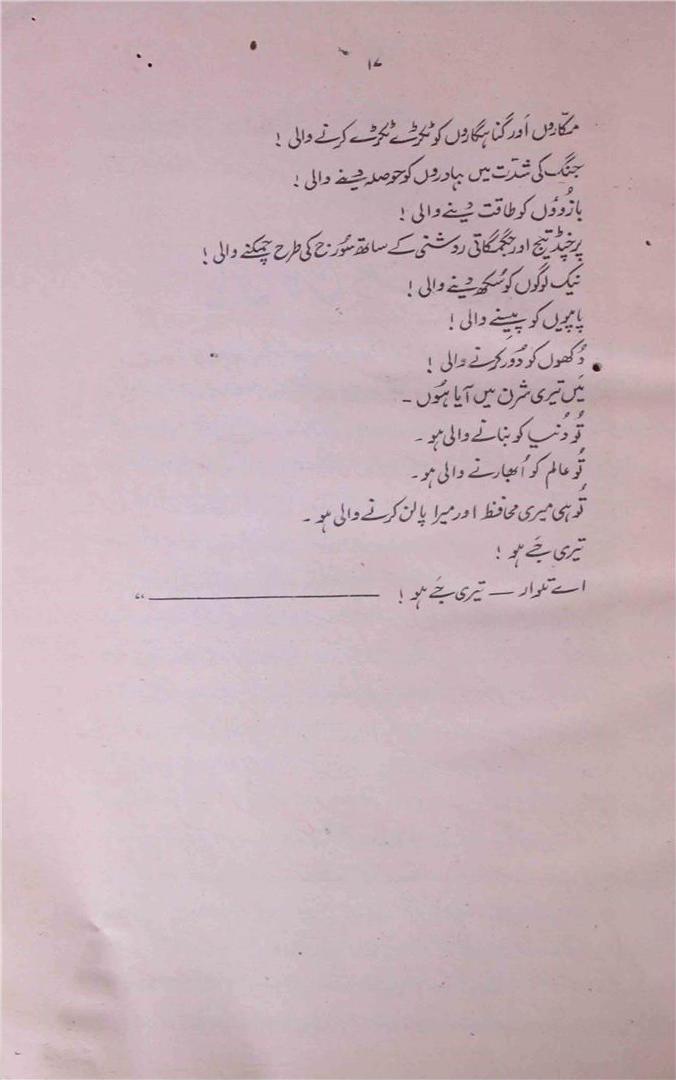 ۱۷
مکّاروں اَور گناہگاروں کو ٹکڑے ٹکڑے کرنے والی !
جنگ کی شدّت میں بہادروں کو حوصلہ دینے والی !
بازُوؤں کو طاقت دینے والی !
پرچنڈ تیج اور جگمگاتی روشنی کے ساتھ سُورج کی طرح چمکنے والی !
نیک لوگوں کو سُکھ دینے والی !
پاپیوں کو پِیسنے والی !
دُکھوں کو دُور کرنے والی !
مَیں تیری شرن میں آیا ہُوں ۔
تُو دُنیا کو بنانے والی ہو ۔
تُو عالم کو اُبھارنے والی ہو ۔
تُو ہی میری محافظ اور میرا پالن کرنے والی ہو ۔
تیری جَے ہو !
اے تلوار — تیری جَے ہو ! ــــــــــــــــ ”